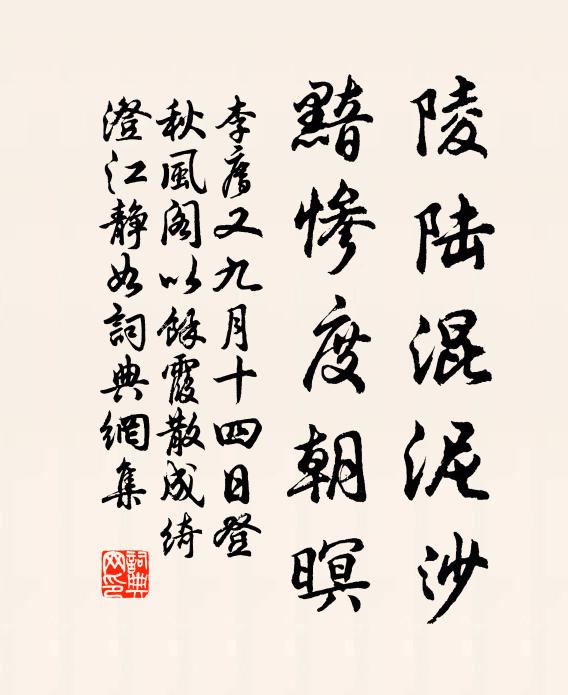 陵陆混泥沙
黯慘度朝暝
李廌又九月十四日登
秋風阁以餘霞散成绮
澄江静如詞典網集
詞典
网印